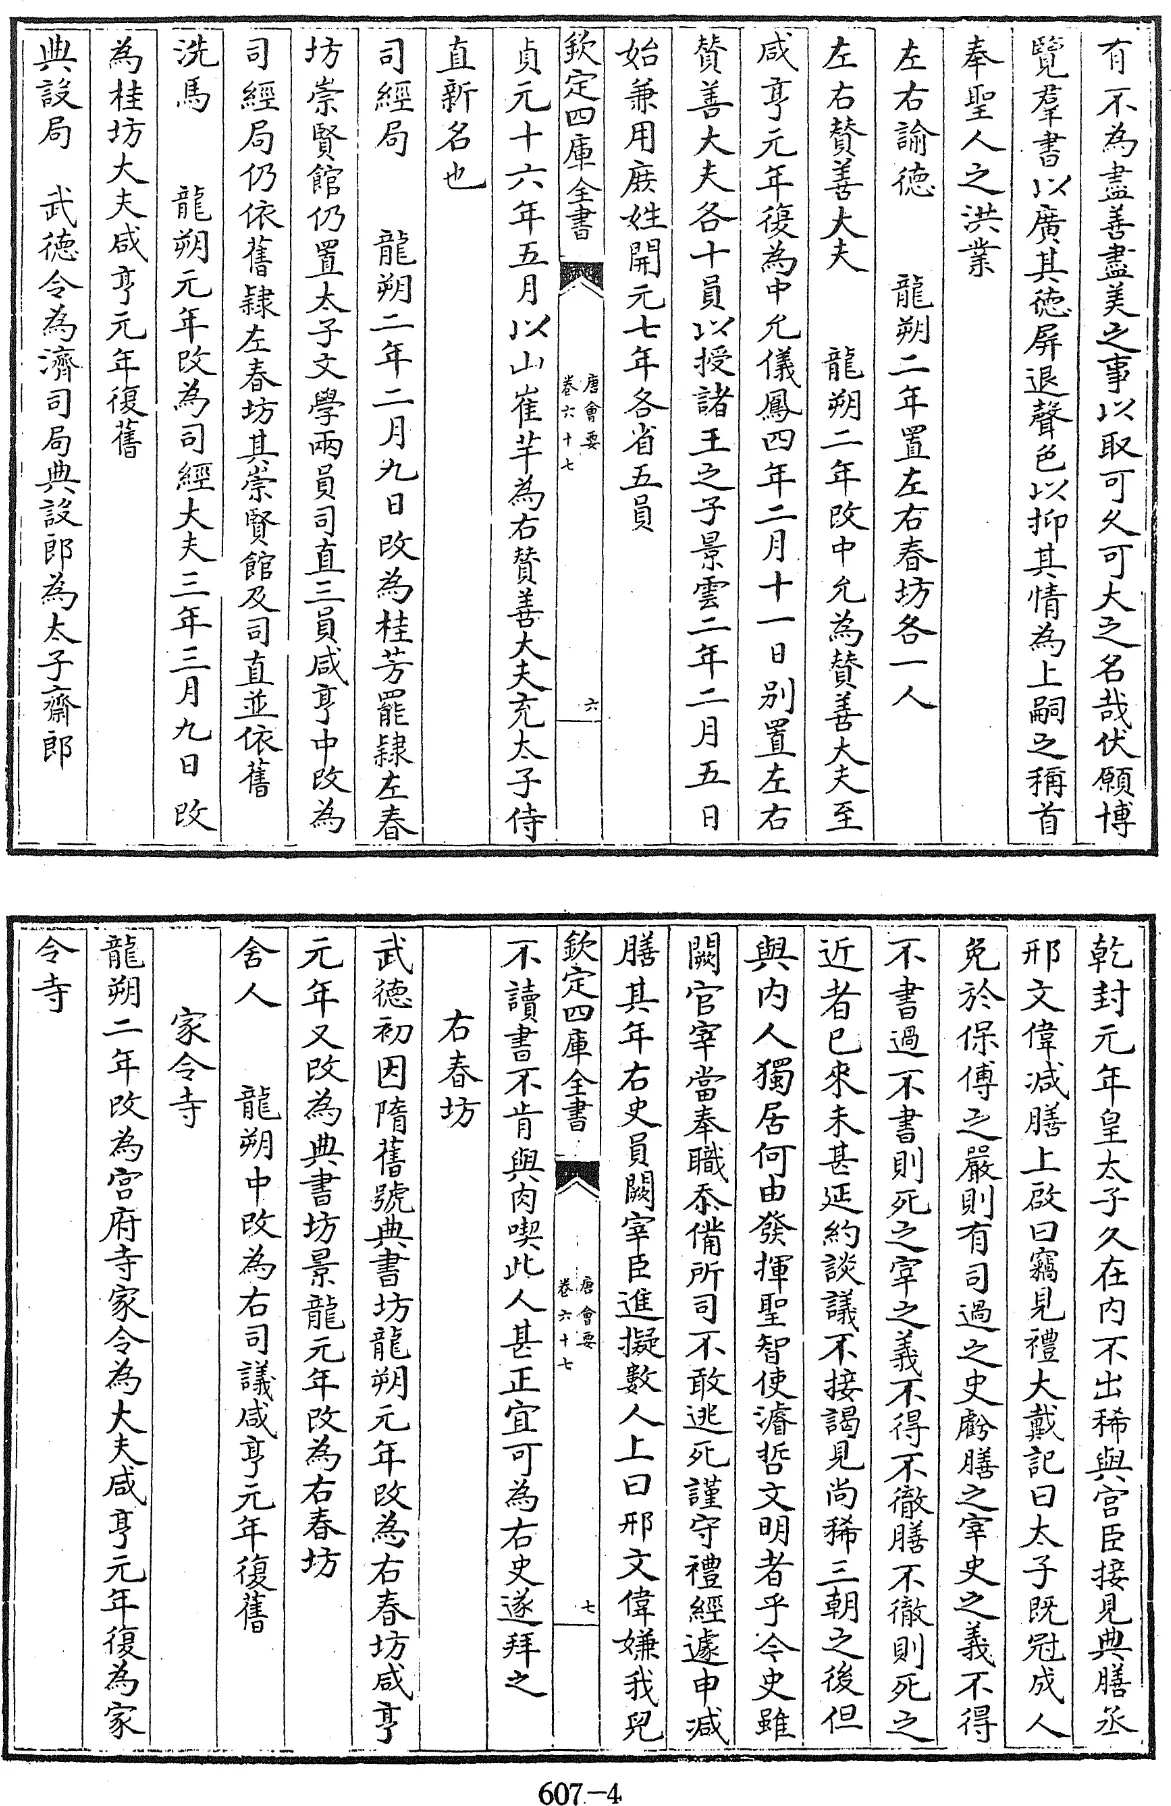 有不為盡善盡美之事以取可久可大之名哉伏願博
覽羣書以廣其徳屏退聲色以抑其情為上嗣之稱首
奉聖人之洪業
左右諭徳　龍朔二年置左右春坊各一人
左右贊善大夫　龍朔二年改中允為贊善大夫至
咸亨元年復為中允儀鳳四年二月十一日别置左右
贊善大夫各十員以授諸王之子景雲二年二月五日
始兼用庶姓開元七年各省五員
欽定四庫全書
唐會要
卷六十七
六
貞元十六年五月以山崔芊為右贊善大夫充太子侍
直新名也
司經局　龍朔二年二月九日改為桂芳罷隷左春
坊崇賢館仍置太子文學兩員司直三員咸亨中改為
司經局仍依舊隷左春坊其崇賢館及司直並依舊
洗馬　龍朔元年改為司經大夫三年三月九日改
為桂坊大夫咸亨元年復舊
典設局　武徳令為濟司局典設郎為太子齋郎
乾封元年皇太子久在内不出稀與宫臣接見典膳丞
邢文偉减膳上啟曰竊見禮大戴記曰太子既冠成人
免於保傅之嚴則有司過之史虧膳之宰史之義不得
不書過不書則死之宰之義不得不徹膳不徹則死之
近者已來未甚延約談議不接謁見尚稀三朝之後但
與内人獨居何由發揮聖智使濬哲文明者乎今史雖
闕官宰當奉職忝備所司不敢逃死謹守禮經遽申减
膳其年右史員闕宰臣進擬數人上曰邢文偉嫌我兒
欽定四庫全書
唐會要
卷六十七
七
不讀書不肯與肉喫此人甚正宜可為右史遂拜之
右春坊
武徳初因隋舊號典書坊龍朔元年改為右春坊咸亨
元年又改為典書坊景龍元年改為右春坊
舍人　龍朔中改為右司議咸亨元年復舊
家令寺
龍朔二年改為宫府寺家令為大夫咸亨元年復為家
令寺
607-4